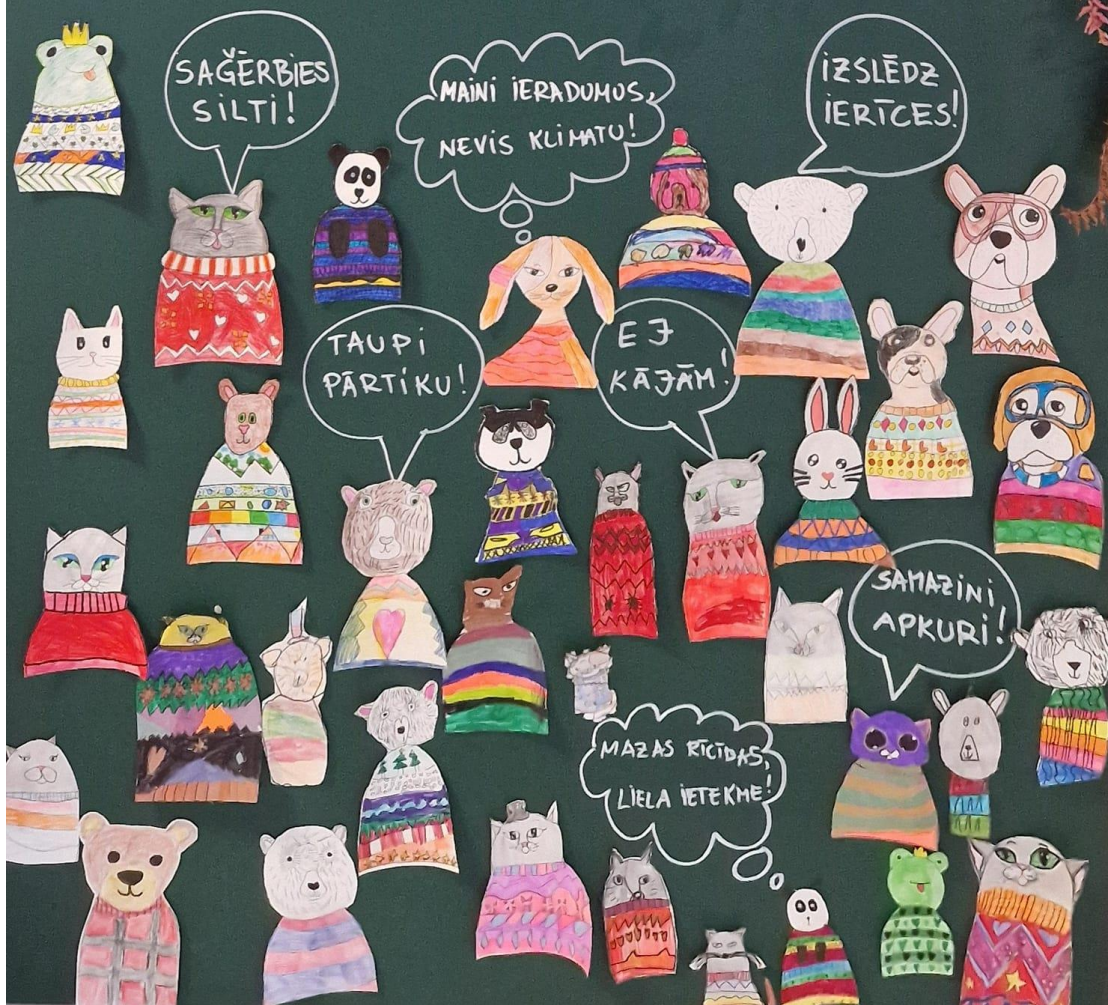 SAĢĒRBIES
SILTI!
MAINI IERADUMUS,
NEVIS KLIMATU!
IZSLĒDZ
IERĪCES!
TAUPI
PĀRTIKU!
EJ
KĀJĀM!
SAMAZINI
APKURI!
MAZAS RĪCĪBAS,
LIELA IETEKME!